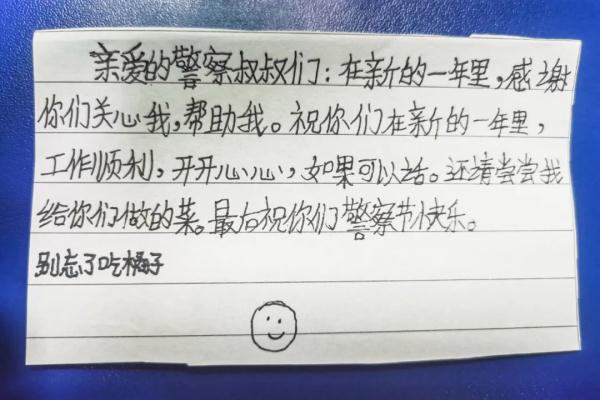 亲爱的警察叔叔们：在新的一年里，感谢
你们关心我，帮助我。祝你们在新的一年里，
工作顺利，开开心心，如果可以话。还请尝尝我
给你们做的菜。最后祝你们警察节快乐。
别忘了吃橘子